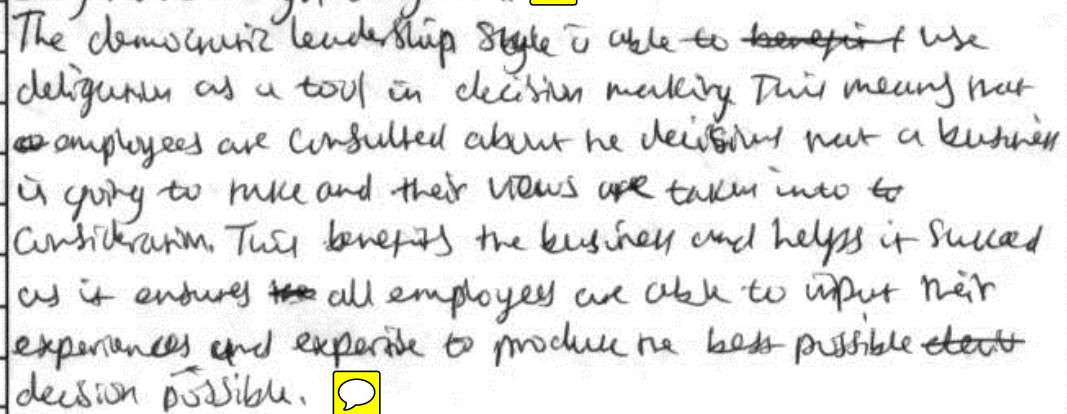 The democratic leadership style is able to benefit use
deligation as a tool in decision making. This means that
employees are consulted about the decisions that a business
is going to make and their views are taken into to
consideration. This benefits the business and helps it succeed
as it ensures the all employees are able to input their
experiences and expertise to produce the best possible
decision possible.